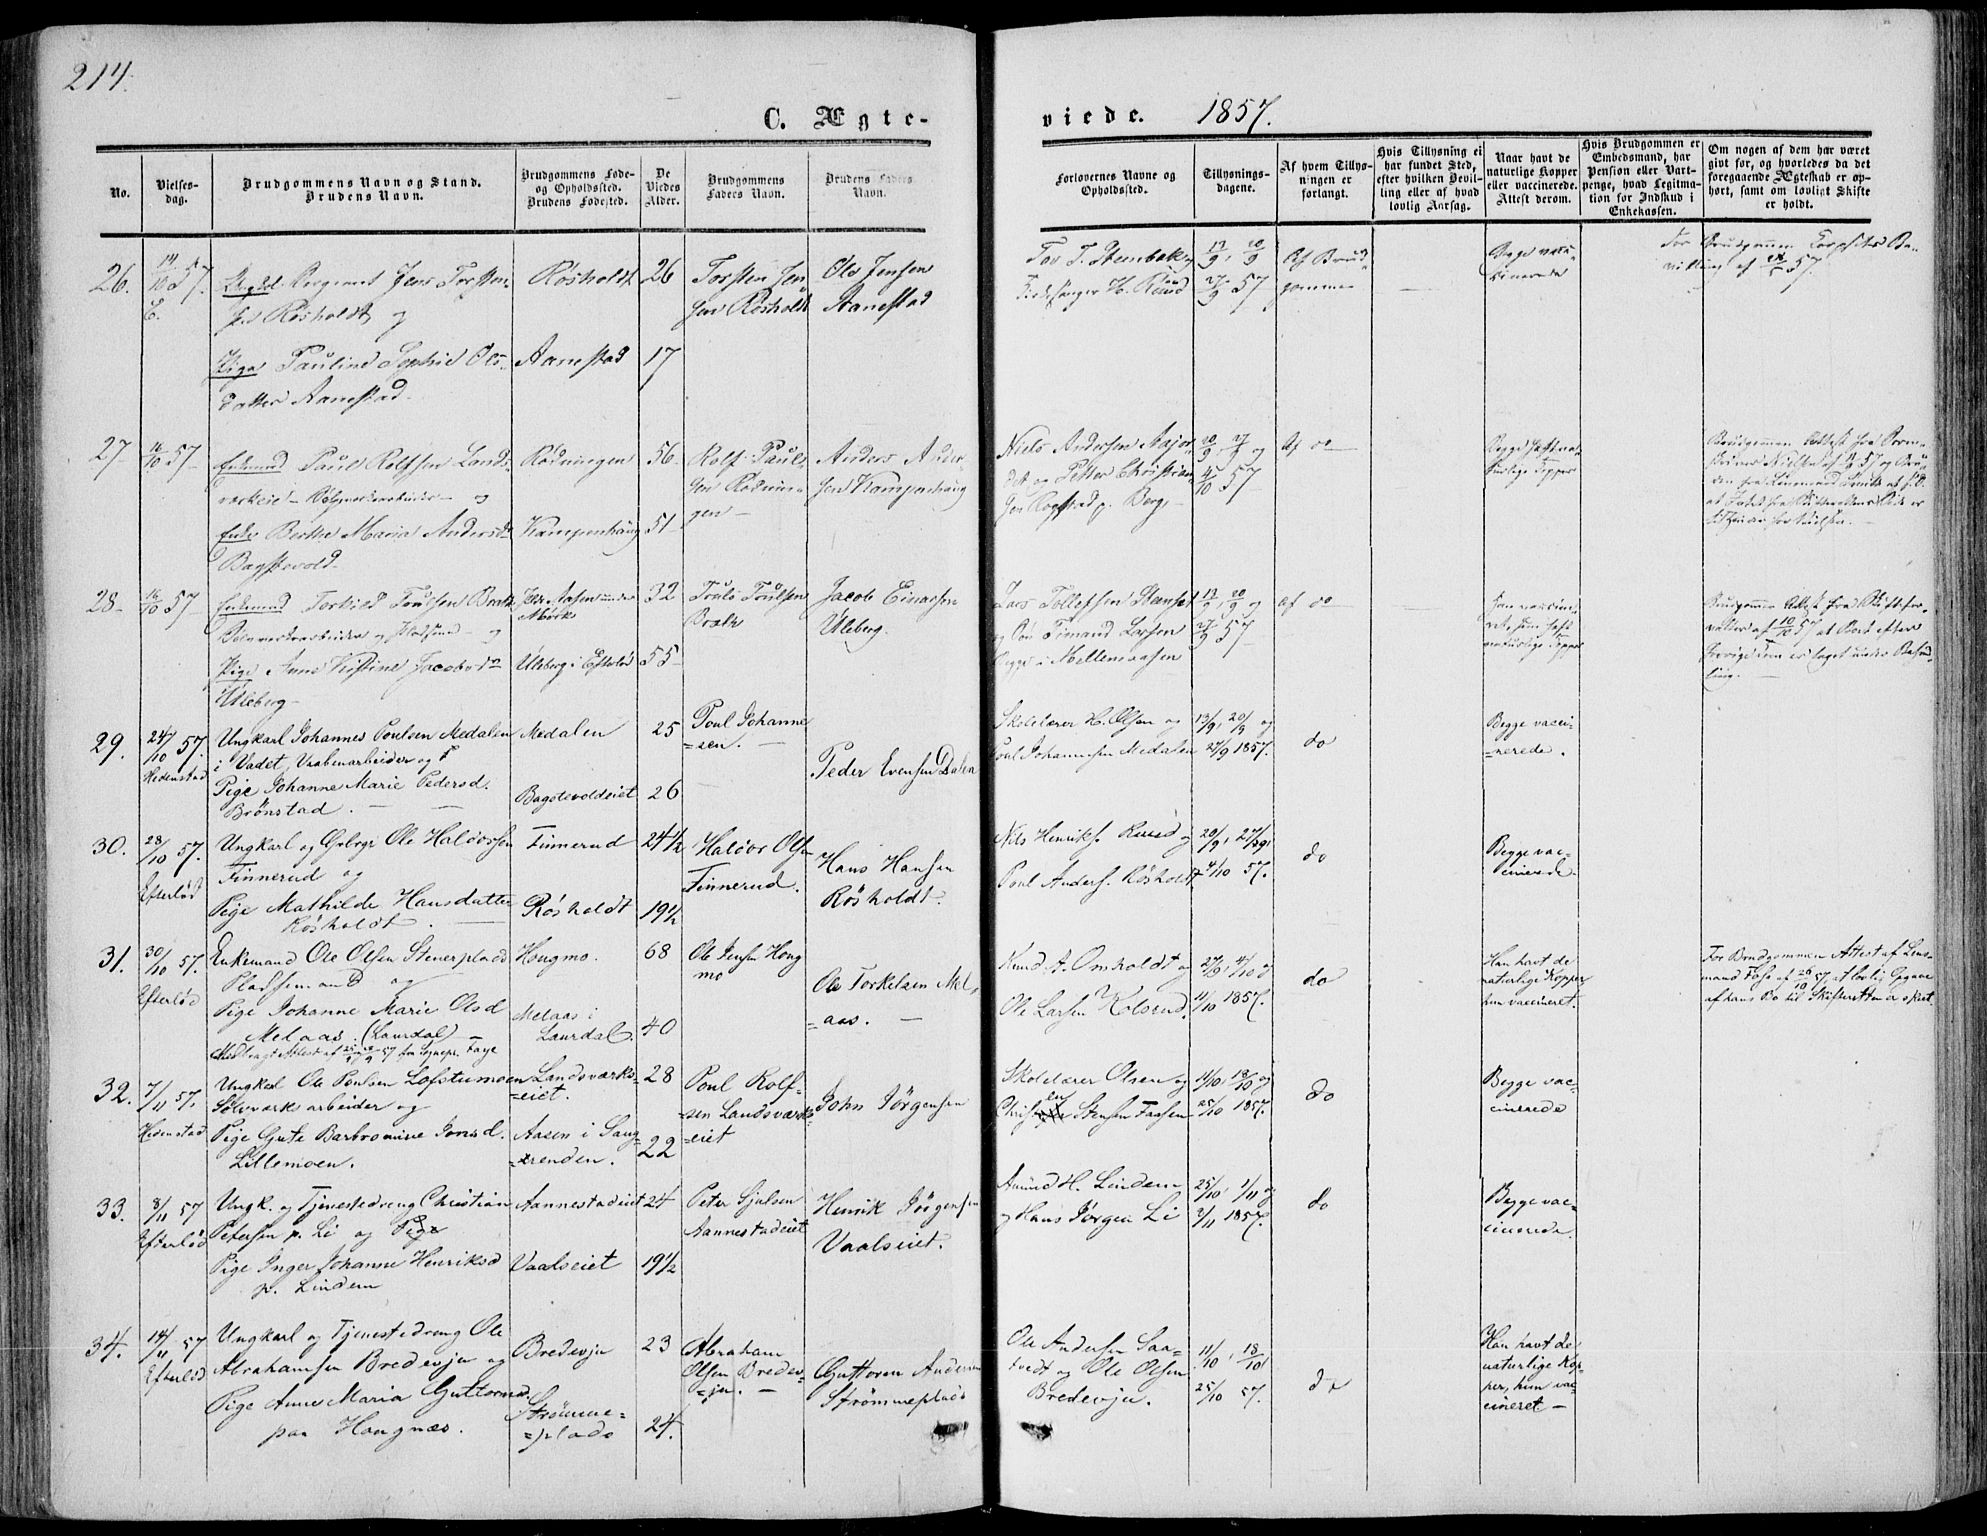 214.
C. Ægte-
viede. 1857.
No.
Vielses-
dag.
Brudgommens Navn og Stand.
Brudens Navn.
Brudgommens Føde-
og Opholdssted.
Brudens Fødested.
De
Viedes
Alder.
Brudgommens
Faders Navn.
Brudens Faders
Navn.
Forlovernes Navne og
Opholdssted.
Tillysnings-
dagene.
Af hvem Tillys-
ningen er
forlangt.
Hvis Tillysning ei
har fundet Sted,
efter hvilken Bevil-
ling eller af hvad
lovlig Aarsag.
Naar havt de
naturlige Kopper
eller vaccinerede.
Attest derom.
Hvis Brudgommen er
Embedsmand, har
Pension eller Vart-
penge, hvad Legitima-
tion for Indskud i
Enkekassen.
Om nogen af dem har været
givt før, og hvorledes da det
foregaaende Ægteskab er op-
hørt, samt om lovligt Skifte
er holdt.
26. 14/10 57. E.
Jens Torsten-
sen Røsholdt og
Pige Pauline Sophie Ols-
datter Aanestad.
Røsholdt 26
Aanestad 17
Torsten Jen-
sen Røsholdt
Ole Jensen
Aanestad
Tov T. Stenbek og
H. Ruud
13/9, 20/9
27/9 57
Af Brud-
gommen
Begge vacci-
nerede
27. 16/10 57
Enkemand Paul Rolfsen Lands-
værkeie Sølvværksarbeider og
Enke Berthe Maria Andersd.
Bagstevold
Rødningen 56
Kampenhaug 51
Rolf Pauls-
sen Rødnin-
gen
Anders Ander-
sen Kampenhaug
Niels Andersen Major-
det og Petter Christian-
sen Rogstad p. Berg
20/9, 27/9 og
4/10 57
Af do
Begge havt nat-
urlige Kopper
28. 16/10 57
Enkemand Torkild Truulsen Bræk
Sølvværksarbeider og Pladsmand og
Pige Anne Kirstine Jacobsd.
Uleberg
Mørk 32
Uleberg i Efteløt 55
Truuls Truulsen
Bræk
Jacob Einarsen
Uleberg.
Lars Tollefsen Stenset
og Søn Simand Larsen
begge i Mellemaasen
13/9, 20/9 og
27/9 57
Af do
29. 24/10 57.
Hedenstad
Ungkarl Johannes Poulsen Medalen
i Vadet, Vaabenarbeider og
Pige Johanne Marie Pedersd.
Brønstad.
Medalen 25
Bagstevoldeiet 26
Poul Johanne
=sen.
Peder Evensen Dalen
Skolelærer H. Olsen og
Poul Johannesen Medalen
13/9, 20/9 og
27/9 1857.
do
Begge vacci-
=nerede.
30. 28/10 57.
Efteløt
Ungkarl og Gbrgr Ole Halvorsen
Finnerud og
Pige Mathilde Hansdatter
Røsholdt.
Finnerud 24 1/2
Røsholdt 19 1/2
Halvor Olsen
Finnerud.
Hans Hansen
Røsholdt.
Nils Henriks. Ruud og
Poul Anders. Røsholdt
20/9, 27/9,
4/10 57.
do
Begge vac-
cinerede.
31. 30/10 57.
Efteløt
Enkemand Ole Olsen Stenerplads
Pladsemand og
Pige Johanne Marie Olsd
Melaas. (Laurdal)
Haugmo. 68
Melaas i
Laurdal. 40
Ole Jensen Haug
mo
Ole Torkelsen Mel-
=aas.
Knud A. Omholdt og
Ole Larsen Kolsrud.
27/9, 4/10 og
11/10 1857.
do
Han havt de
naturlige Kopper
hun vaccineret.
For Brudgommen Attest af Lens-
mand Faye af 26/10 57 at lovlig Opgave
af hans Bo til Skifteretten er skeet
32. 7/11 57.
Hedenstad
Ungkarl Ole Poulsen Lofstumoen
Sølvværksarbeider og
Pige Gute Barbromine Jonsd.
Lillemoen.
Landsværks-
=eiet. 28
Aasen i Saug-
=renden. 22
Poul Rolf-
=sen Landsværks-
=eiet
John Jørgensen
Skolelærer Olsen og
Stensen Faasen
11/10, 18/10 og
25/10 1857.
do
Begge vac-
cinerede
33. 8/11 57
Efteløt
Ungk. og Tjenestedreng Christian
Petersen p. Li og Pige
Pige Inger Johanne Henriksd
p. Lindem
Aannestadeiet 24
Vaalseiet 19 1/2
Peter Gulsen
Aannestadeiet
Henrik Jørgensen
Vaalseiet.
Amund H. Lindem
og Hans Jørgen Li
25/10, 1/11 og
1857.
do
Begge vac-
cinerede.
34. 14/11 57
Efteløt
Ungkarl og Tjenestedreng Ole
Abrahamsen Bredevju og
Pige Anne Maria Guttormsd.
paa Haugnæs.
Bredevju 23
Strømme-
=plads 24.
Abraham
Olsen Brede-
=vju.
Guttorm Andersen
Strømmeplads
Ole Andersen Saa-
tvedt og Ole Olsen
Bredevju.
11/10, 18/10,
25/10 57.
do
Han havt de
naturlige Kop-
per, hun vac-
cineret